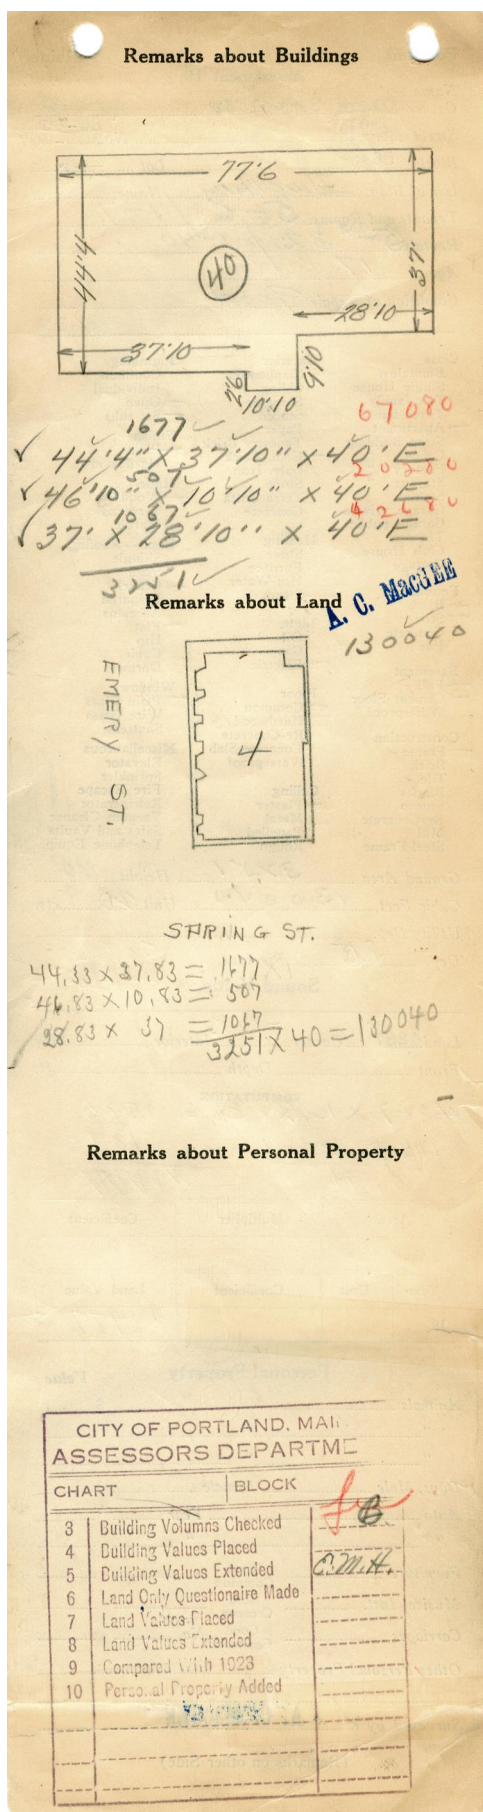 Remarks about Buildings
77'.6
44'.4
40
37'
28'10
37'10
9'.10
2'6
10'10
67080
1677
44'4" X 37'10" X 40'.E
20280
507
46'10" X 10'10" X 40'.E
42680
1067
37' X 28'10" X 40'E
3251
Remarks about Land
A. C. MacGEE
130040
EMERY ST.
4
SPRING ST.
44.33 X 37.83 = 1677
46.83 X 10.83 = 507
28.83 X 37 = 1067
3251 X 40 = 130040
Remarks about Personal Property
CITY OF PORTLAND, MAI
ASSESSORS DEPARTME
CHART BLOCK
B.
3 Building Volumns Checked
4 Building Values Placed
5 Building Values Extended E.M.H.
6 Land Only Questionaire Made
7 Land Values Placed
8 Land Values Extended
9 Compared With 1923
10 Personal Property Added